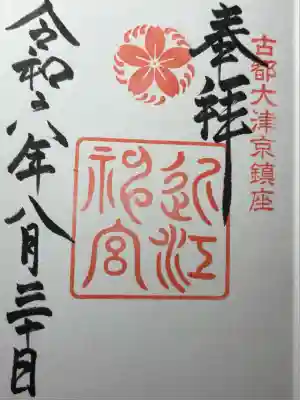 古都大津京鎮座
奉拝
近江神宮
令和八年八月三十日